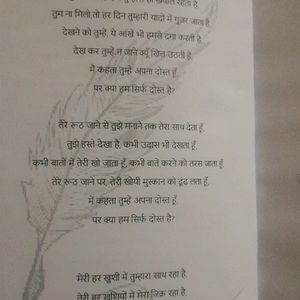 ख्याल रहता है
तुम ना मिलो,तो हर दिन तुम्हारी यादों में गुज़र जाता है,
देखने को तुम्हें, ये आंखें भी हमसे दगा करती है,
देख कर तुम्हें,न जाने क्यूँ खिल उठती है,
में कहता तुम्हें अपना दोस्त हूँ,
पर क्या हम सिर्फ दोस्त है?
तेरे रूठ जाने से तुझे मनाने तक तेरा साथ देता हूँ,
तुझे हस्ते देखा है, कभी उदास भी देखता हूँ,
कभी बातों में तेरी खो जाता हूँ, कभी बाते करने को तरस जाता हूँ
तेरे रूठ जाने पर, तेरी खोयी मुस्कान को ढूंढ लता हूँ,
में कहता तुम्हें अपना दोस्त हूँ,
पर क्या हम सिर्फ दोस्त है?
मेरी हर खुशी में तुम्हारा साथ रहा है,
तेरी हर खुशियों में मेरा जिक्र रहा है,